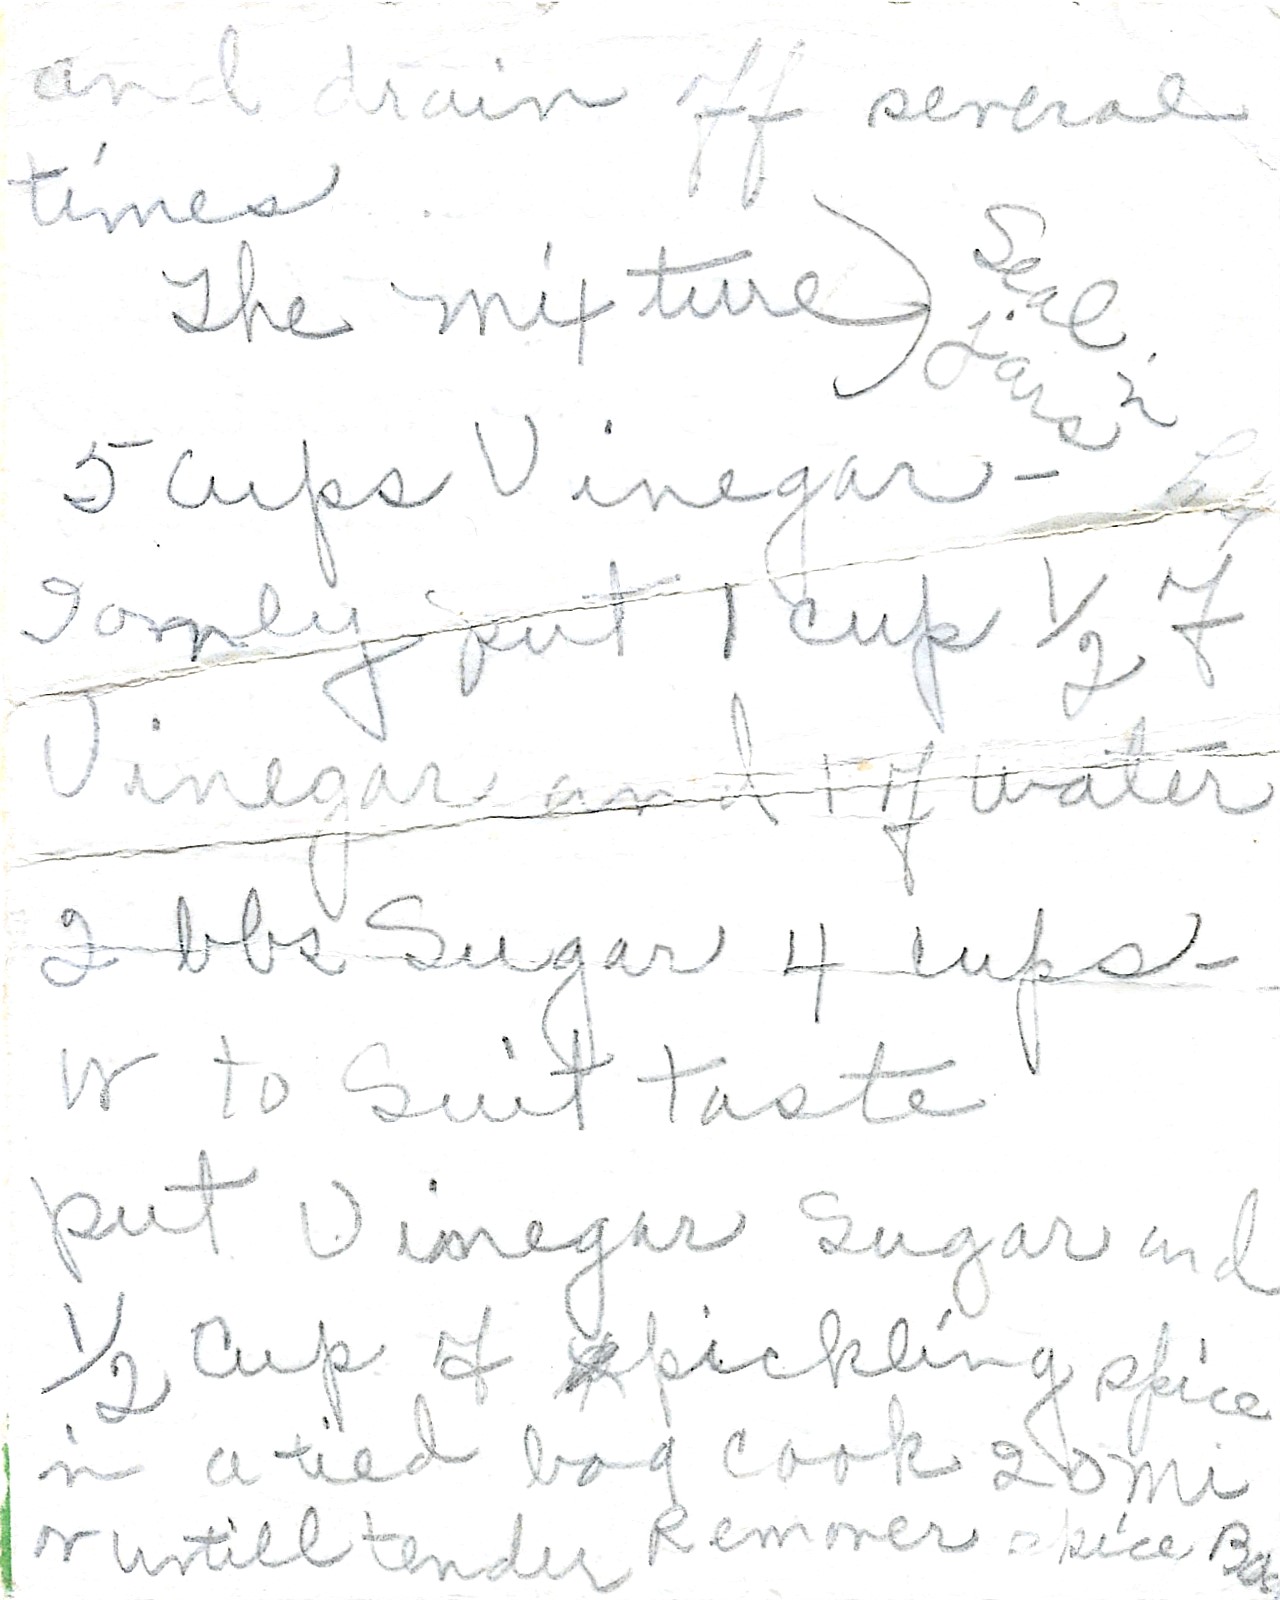 and drain off several
times
The mixture)
Seal
Jars in
5 cups Vinegar -
I only put 1 cup 1/2 of
Vinegar and 1 of water
2 lbs Sugar 4 cups -
or to Suit taste
put Vinegar Sugar and
1/2 Cup of pickling spice
in a tied bag cook 20 mi
or untill tender Remover spice Bag